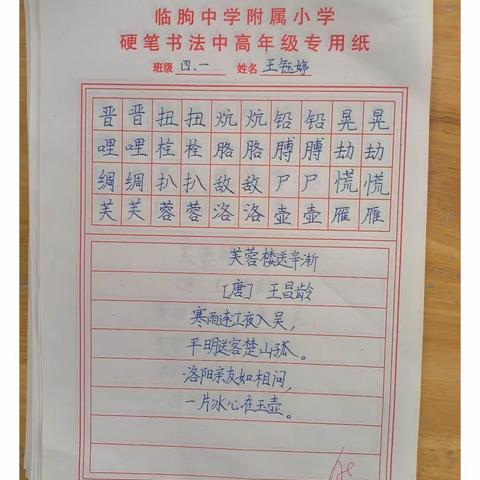 临朐中学附属小学
硬笔书法中高年级专用纸
班级 四.一 姓名 王钰婷
晋晋扭扭炕炕铅铅晃晃
哩哩栓栓胳胳膊膊劫劫
绸绸扒扒敌敌尸尸慌慌
芙芙蓉蓉洛洛壶壶雁雁
芙蓉楼送辛渐
[唐] 王昌龄
寒雨连江夜入吴,
平明送客楚山孤。
洛阳亲友如相问,
一片冰心在玉壶。